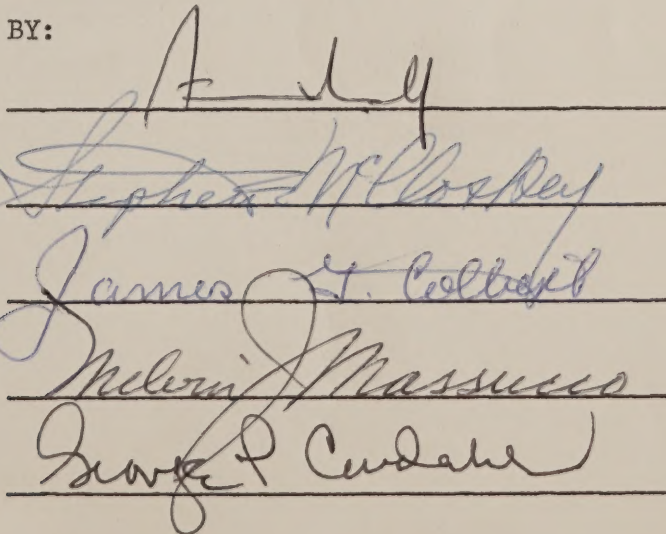 BY:
Stephen McCloskey
James G. Colbert
Melvin J. Massucco
George P.